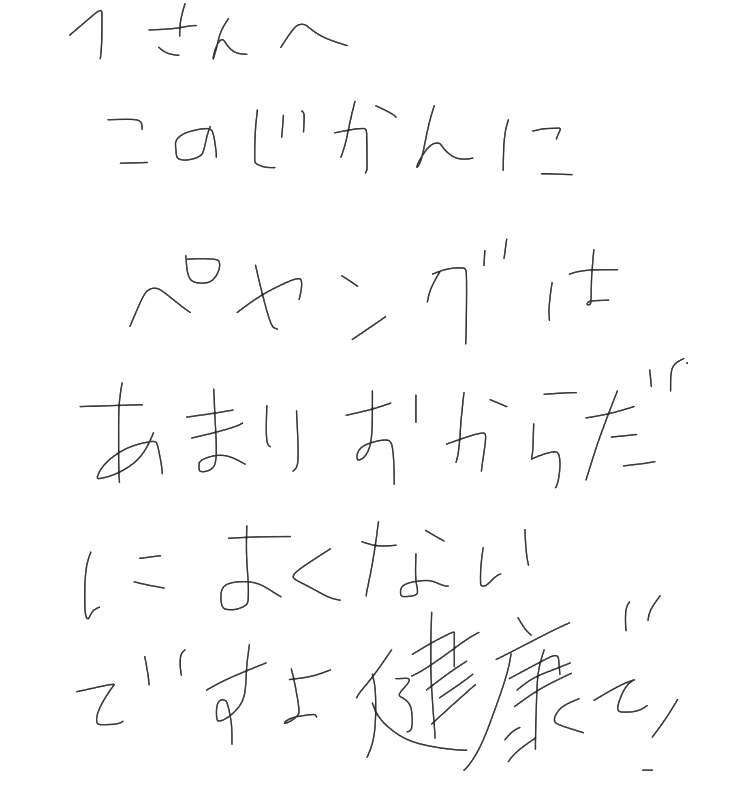 1さんへ
このじかんに
ペヤングは
あまりおからだ
によくない
ですよ健康で!